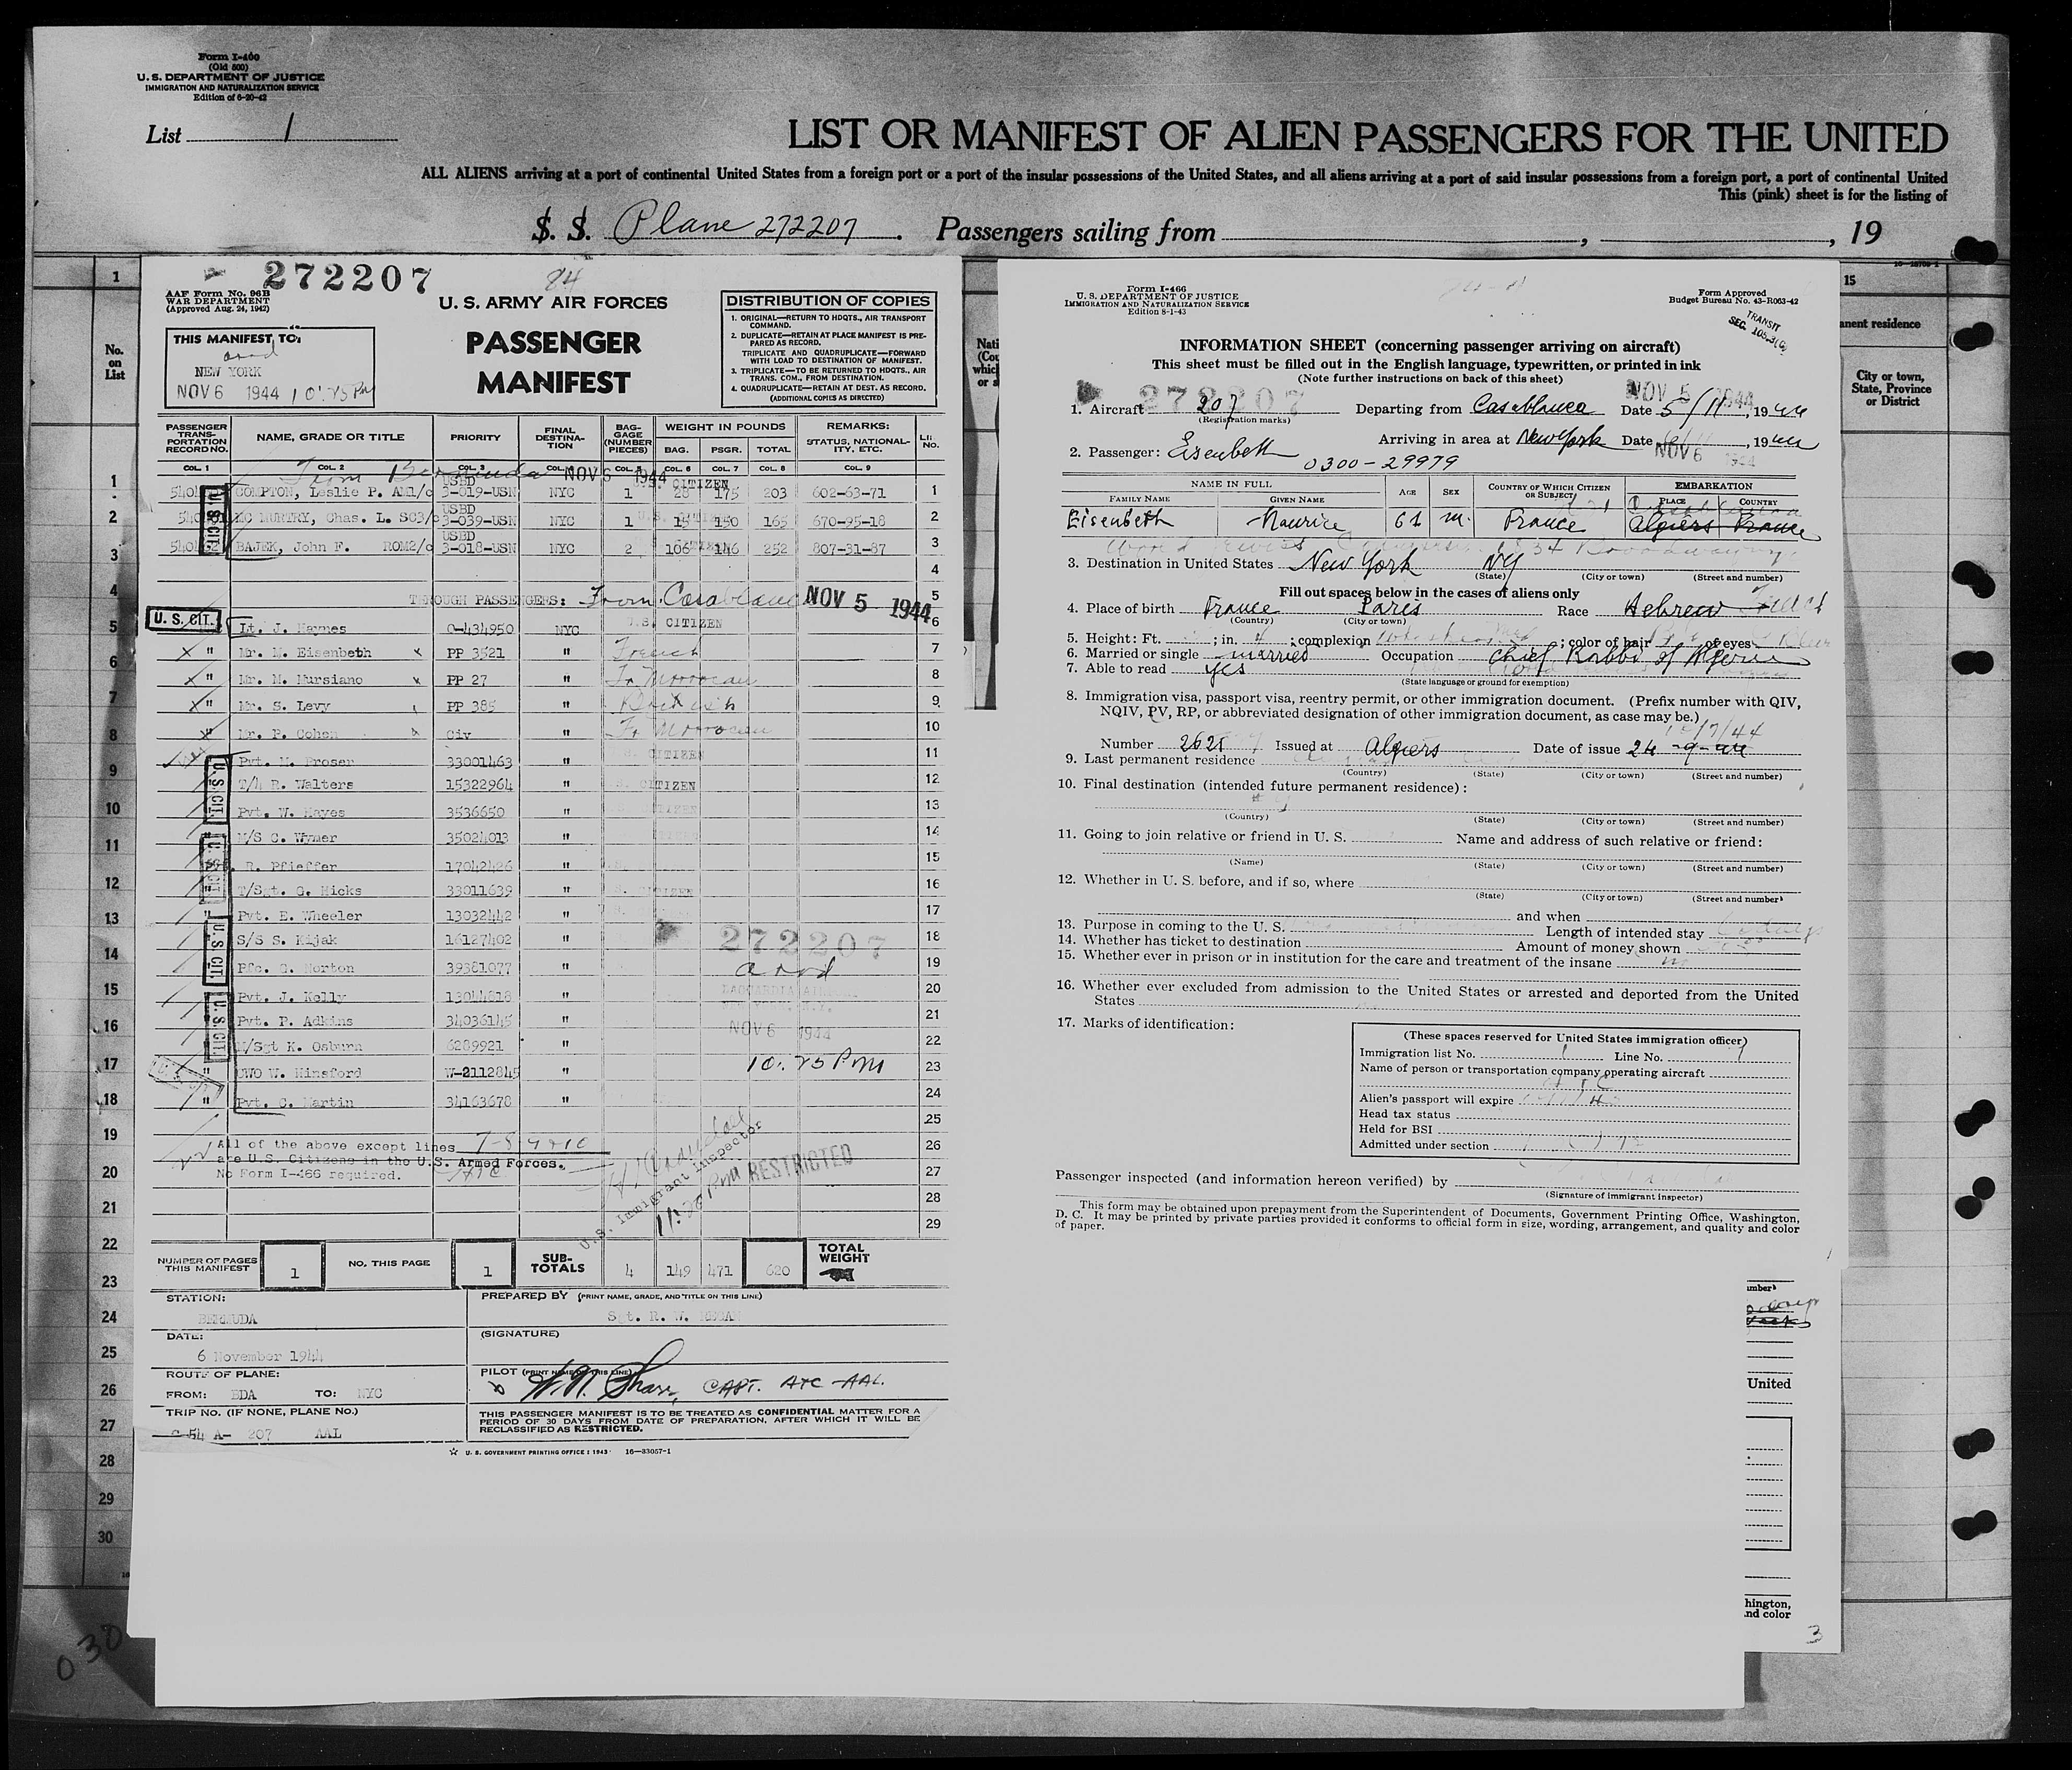 Form I-400
(Old 500)
U. S. DEPARTMENT OF JUSTICE
IMMIGRATION AND NATURALIZATION SERVICE
Edition of 6-20-42
List 1
LIST OR MANIFEST OF ALIEN PASSENGERS FOR THE UNITED
ALL ALIENS arriving at a port of continental United States from a foreign port or a port of the insular possessions of the United States, and all aliens arriving at a port of said insular possessions from a foreign port, a port of continental United
This (pink) sheet is for the listing of
S. S. Plane 272207. Passengers sailing from , , 19
No.
on
List
1
1
2
3
4
5
6
7
8
9
10
11
12
13
14
15
16
17
18
19
20
21
22
23
24
25
26
27
28
29
30
272207
84
AAF Form No. 96B
WAR DEPARTMENT
(Approved Aug. 24, 1942)
U. S. ARMY AIR FORCES
PASSENGER
MANIFEST
THIS MANIFEST TO:
arod
NEW YORK
NOV 6 1944 10:25 PM
DISTRIBUTION OF COPIES
1. ORIGINAL—RETURN TO HDQTS., AIR TRANSPORT
COMMAND.
2. DUPLICATE—RETAIN AT PLACE MANIFEST IS PRE-
PARED AS RECORD.
TRIPLICATE AND QUADRUPLICATE—FORWARD
WITH LOAD TO DESTINATION OF MANIFEST.
3. TRIPLICATE—TO BE RETURNED TO HDQTS., AIR
TRANS. COM., FROM DESTINATION.
4. QUADRUPLICATE—RETAIN AT DEST. AS RECORD.
(ADDITIONAL COPIES AS DIRECTED)
PASSENGER TRANS-PORTATION RECORD NO. NAME, GRADE OR TITLE PRIORITY FINAL DESTINA-TION BAG-GAGE (NUMBER PIECES) WEIGHT IN POUNDS BAG. PSGR. TOTAL REMARKS: STATUS, NATIONAL-ITY, ETC. NO.
COL. 1 COL. 2 COL. 3 COL. 5 COL. 6 COL. 7 COL. 8 COL. 9
From Bermuda NOV 6 1944
COMPTON, Leslie P. AM1/c USBD 3-019-USN NYC 1 28 175 203 602-63-71 1
MC MURTRY, Chas. L. SC3/c USBD 3-039-USN NYC 1 15 150 165 670-95-18 2
BAJEK, John F. ROM2/c USBD 3-018-USN NYC 2 106 146 252 807-31-87 3
4
THROUGH PASSENGERS: From Casablanca NOV 5 1944 5
U. S. CIT. Lt. J. Haynes O-434950 NYC U.S. CITIZEN 6
X " Mr. M. Eisenbeth x PP 3521 " French 7
X " Mr. M. Mursiano x PP 27 " Fr Moroccan 8
X " Mr. S. Levy PP 385 " 9
X Mr. P. Cohen Civ " Fr Moroccan 10
Pvt. M. Proser 33001463 " CITIZEN 11
T/4 R. Walters 15322964 " CITIZEN 12
Pvt. W. Hayes 3536650 " 13
M/S C. Wymer 35024013 " 14
R. Pfieffer 17042426 " 15
T/Sgt. C. Hicks 33011639 " CITIZEN 16
Pvt. E. Wheeler 13032442 " 17
S/S S. Kijak 16127402 " 272207 18
Pfc. C. Norton 39381077 " arod 19
Pvt. J. Kelly 13044818 " 20
Pvt. P. Adkins 34036145 " 21
M/Sgt K. Osburn 6289921 " NOV 6 1944 22
CWO W. Hinsford W-2112845 " 10:25 PM 23
" Pvt. C. Martin 34163678 " 24
U. S. CIT.
U. S. CIT.
U. S. CIT.
U. S. CIT.
25
All of the above except lines 7-8-9+10 26
are U.S. Citizens in the U.S. Armed Forces.
No Form I-466 required. 27
U. S. Immigrant Inspector
RESTRICTED
28
29
NUMBER OF PAGES
THIS MANIFEST 1 NO. THIS PAGE 1 SUB-
TOTALS 4 149 471 620 TOTAL
WEIGHT
STATION:
BERMUDA
PREPARED BY (PRINT NAME, GRADE, AND TITLE ON THIS LINE)
Sgt. R. W.
DATE:
6 November 1944
(SIGNATURE)
ROUTE OF PLANE:
FROM: BDA TO: NYC
PILOT (PRINT NAME ON THIS LINE)
CAPT. ATC-AAL.
TRIP NO. (IF NONE, PLANE NO.)
C-54 A- 207 AAL
THIS PASSENGER MANIFEST IS TO BE TREATED AS CONFIDENTIAL MATTER FOR A
PERIOD OF 30 DAYS FROM DATE OF PREPARATION, AFTER WHICH IT WILL BE
RECLASSIFIED AS RESTRICTED.
☆ U. S. GOVERNMENT PRINTING OFFICE : 1943 16—33057-1
Form I-466
U. S. DEPARTMENT OF JUSTICE
IMMIGRATION AND NATURALIZATION SERVICE
Edition 8-1-43
Form Approved
Budget Bureau No. 43-R063-42
TRANSIT
INFORMATION SHEET (concerning passenger arriving on aircraft)
This sheet must be filled out in the English language, typewritten, or printed in ink
(Note further instructions on back of this sheet)
272207 NOV 5 1944
1. Aircraft 207 Departing from Casablanca Date 5/11, 1944
(Registration marks)
Arriving in area at New York Date , 1944
NOV 6 1944
2. Passenger: Eisenbeth
0300-29979
NAME IN FULL AGE SEX COUNTRY OF WHICH CITIZEN OR SUBJECT EMBARKATION
FAMILY NAME GIVEN NAME PLACE COUNTRY
Eisenbeth Maurice 61 m. France Algiers France
3. Destination in United States New York NY
(State) (City or town) (Street and number)
Fill out spaces below in the cases of aliens only
4. Place of birth France Paris Race Hebrew French
(Country) (City or town)
5. Height: Ft. ; in. 4 ; complexion ; color of hair ; of eyes
6. Married or single married Occupation Chief Rabbi of Algeria
7. Able to read yes
(State language or ground for exemption)
8. Immigration visa, passport visa, reentry permit, or other immigration document. (Prefix number with QIV,
NQIV, PV, RP, or abbreviated designation of other immigration document, as case may be.)
Number Issued at Algiers Date of issue 24-9-44
9. Last permanent residence
(Country) (State) (City or town) (Street and number)
10. Final destination (intended future permanent residence):
(Country) (State) (City or town) (Street and number)
11. Going to join relative or friend in U. S. Name and address of such relative or friend:
(Name) (State) (City or town) (Street and number)
12. Whether in U. S. before, and if so, where
(State) (City or town) (Street and number)
and when
13. Purpose in coming to the U. S. Length of intended stay
14. Whether has ticket to destination Amount of money shown
15. Whether ever in prison or in institution for the care and treatment of the insane no
16. Whether ever excluded from admission to the United States or arrested and deported from the United
States
17. Marks of identification:
(These spaces reserved for United States immigration officer)
Immigration list No. 1 Line No. 7
Name of person or transportation company operating aircraft
Alien's passport will expire
Head tax status
Held for BSI
Admitted under section
Passenger inspected (and information hereon verified) by
(Signature of immigrant inspector)
This form may be obtained upon prepayment from the Superintendent of Documents, Government Printing Office, Washington,
D. C. It may be printed by private parties provided it conforms to official form in size, wording, arrangement, and quality and color
of paper.
15
anent residence
City or town,
State, Province
or District
United
hington,
nd color
3